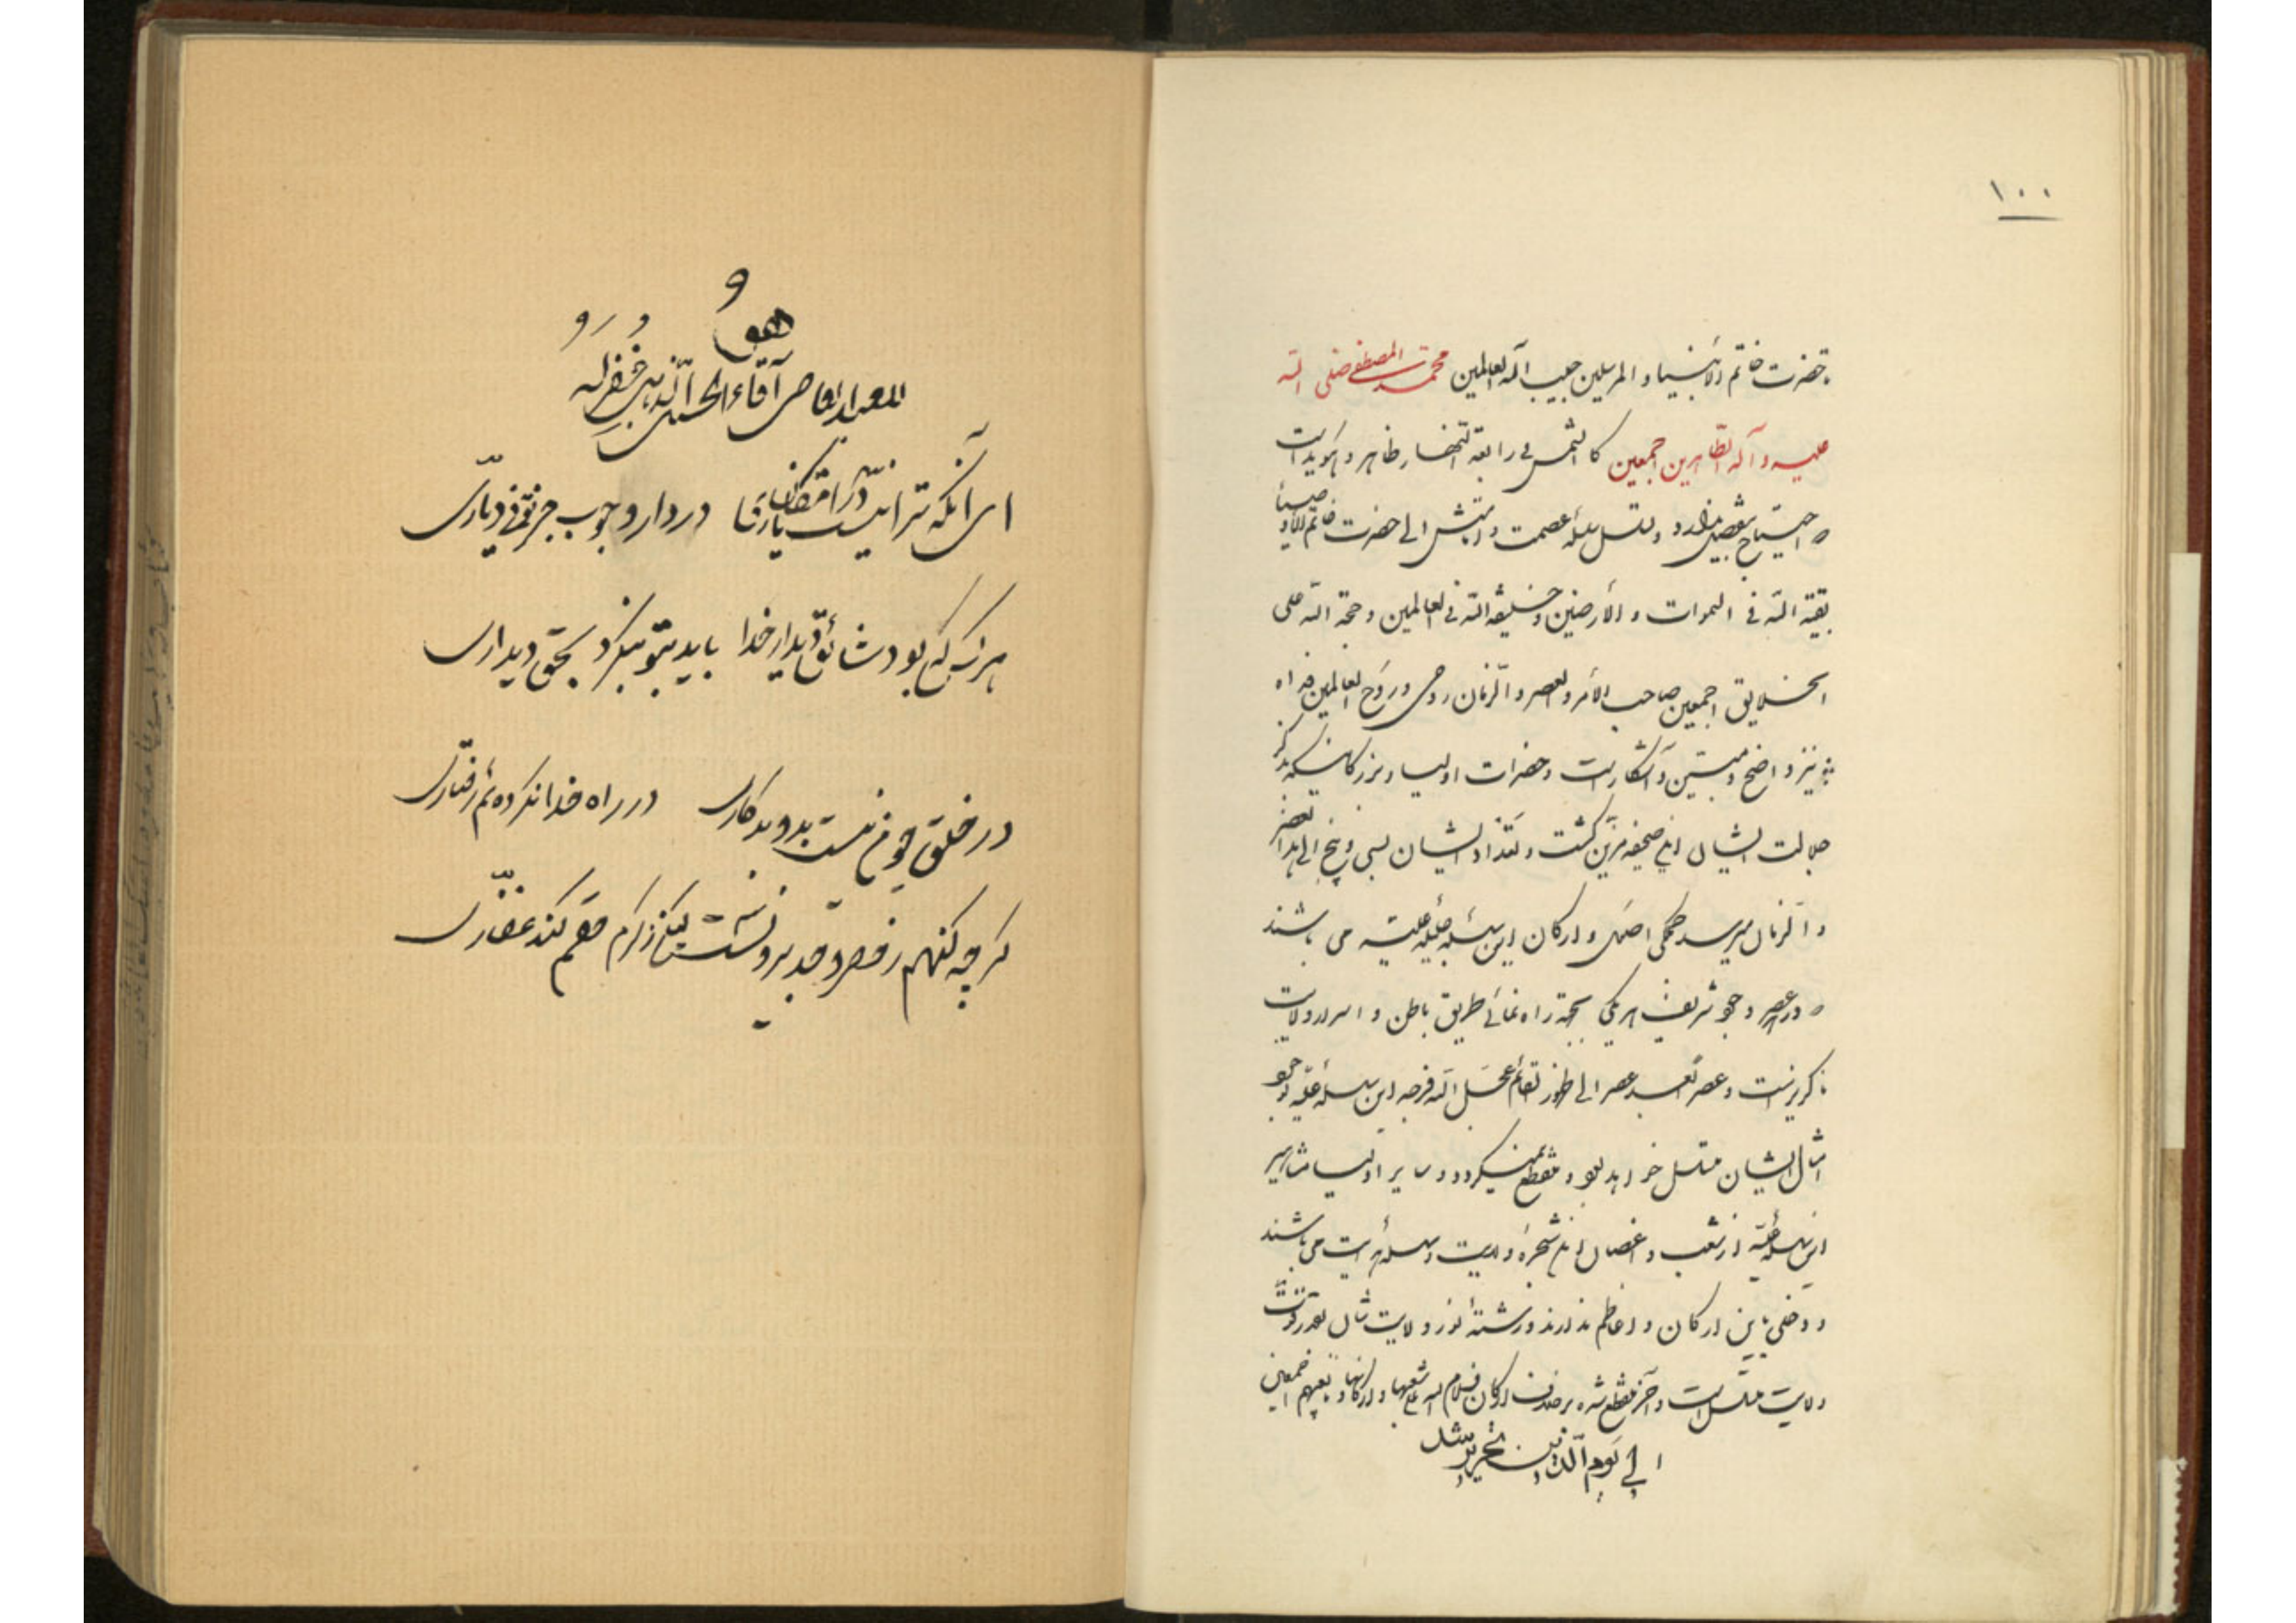 ۱۰۰
حضرت خاتم الأنبیاء و المرسلین حبیب اله العالمین محمد المصطفی صلی الله
علیه و آله الطاهرین اجمعین کالشمس فی رابعة النهار ظاهر و هویداست
احتیاج بتفصیل ندارد و تسلسل سلسله عصمت و الی حضرت خاتم الأوصیاء
بقیة الله فی السموات و الأرضین و خلیفة الله فی العالمین و حجة الله علی
الخلایق اجمعین صاحب الأمر و العصر و الزمان روحی و روح العالمین فداه
نیز واضح و مبین و آشکار است و حضرات اولیاء و بزرگانیکه بذکر
جلالت ایشان این صحیفه مزین گشت و تعداد ایشان بسی و پنج الی هذا العصر
و الزمان میرسد همگی اصل و ارکان این سلسله جلیله علیه می باشند
در عصر وجود شریف هر یکی بجهة راه نمائی طریق باطن و اسرار ولایت
ناگزیر است و عصر بعد عصر الی ظهور القائم عجل الله فرجه این سلسله علیه بوجود
امثال ایشان متسلسل خواهد بود و منقطع نمیگردد و سایر اولیاء مشاهیر
این سلسله علیه از شعب و اغصان این شجره ولایت و سلسله هدایت می باشند
و دخلی باین ارکان و اعاظم ندارند و رشته نور ولایت
ولایت متسلسل است و آخر منقطع شده بر خلاف ارکان فسلام الله علی شعبها و ارکانها و تابعیهم اجمعین
الی یوم الدین تحریر شد
هو
آقاء الحسین الذهبی غفر له
ای آنکه ترا نیست در امکان یاری در دار وجوب جز تو نی دیاری
هر کس که بود شائق دیدار خدا باید بتو بنگرد بحق دیداری
در خلق چو من نیست بد و بد کاری در راه خدا نکرده ئم رفتاری
گر چه گنهم ز حصر و حد بیرونست لیکن ز کرم حقم کند غفاری